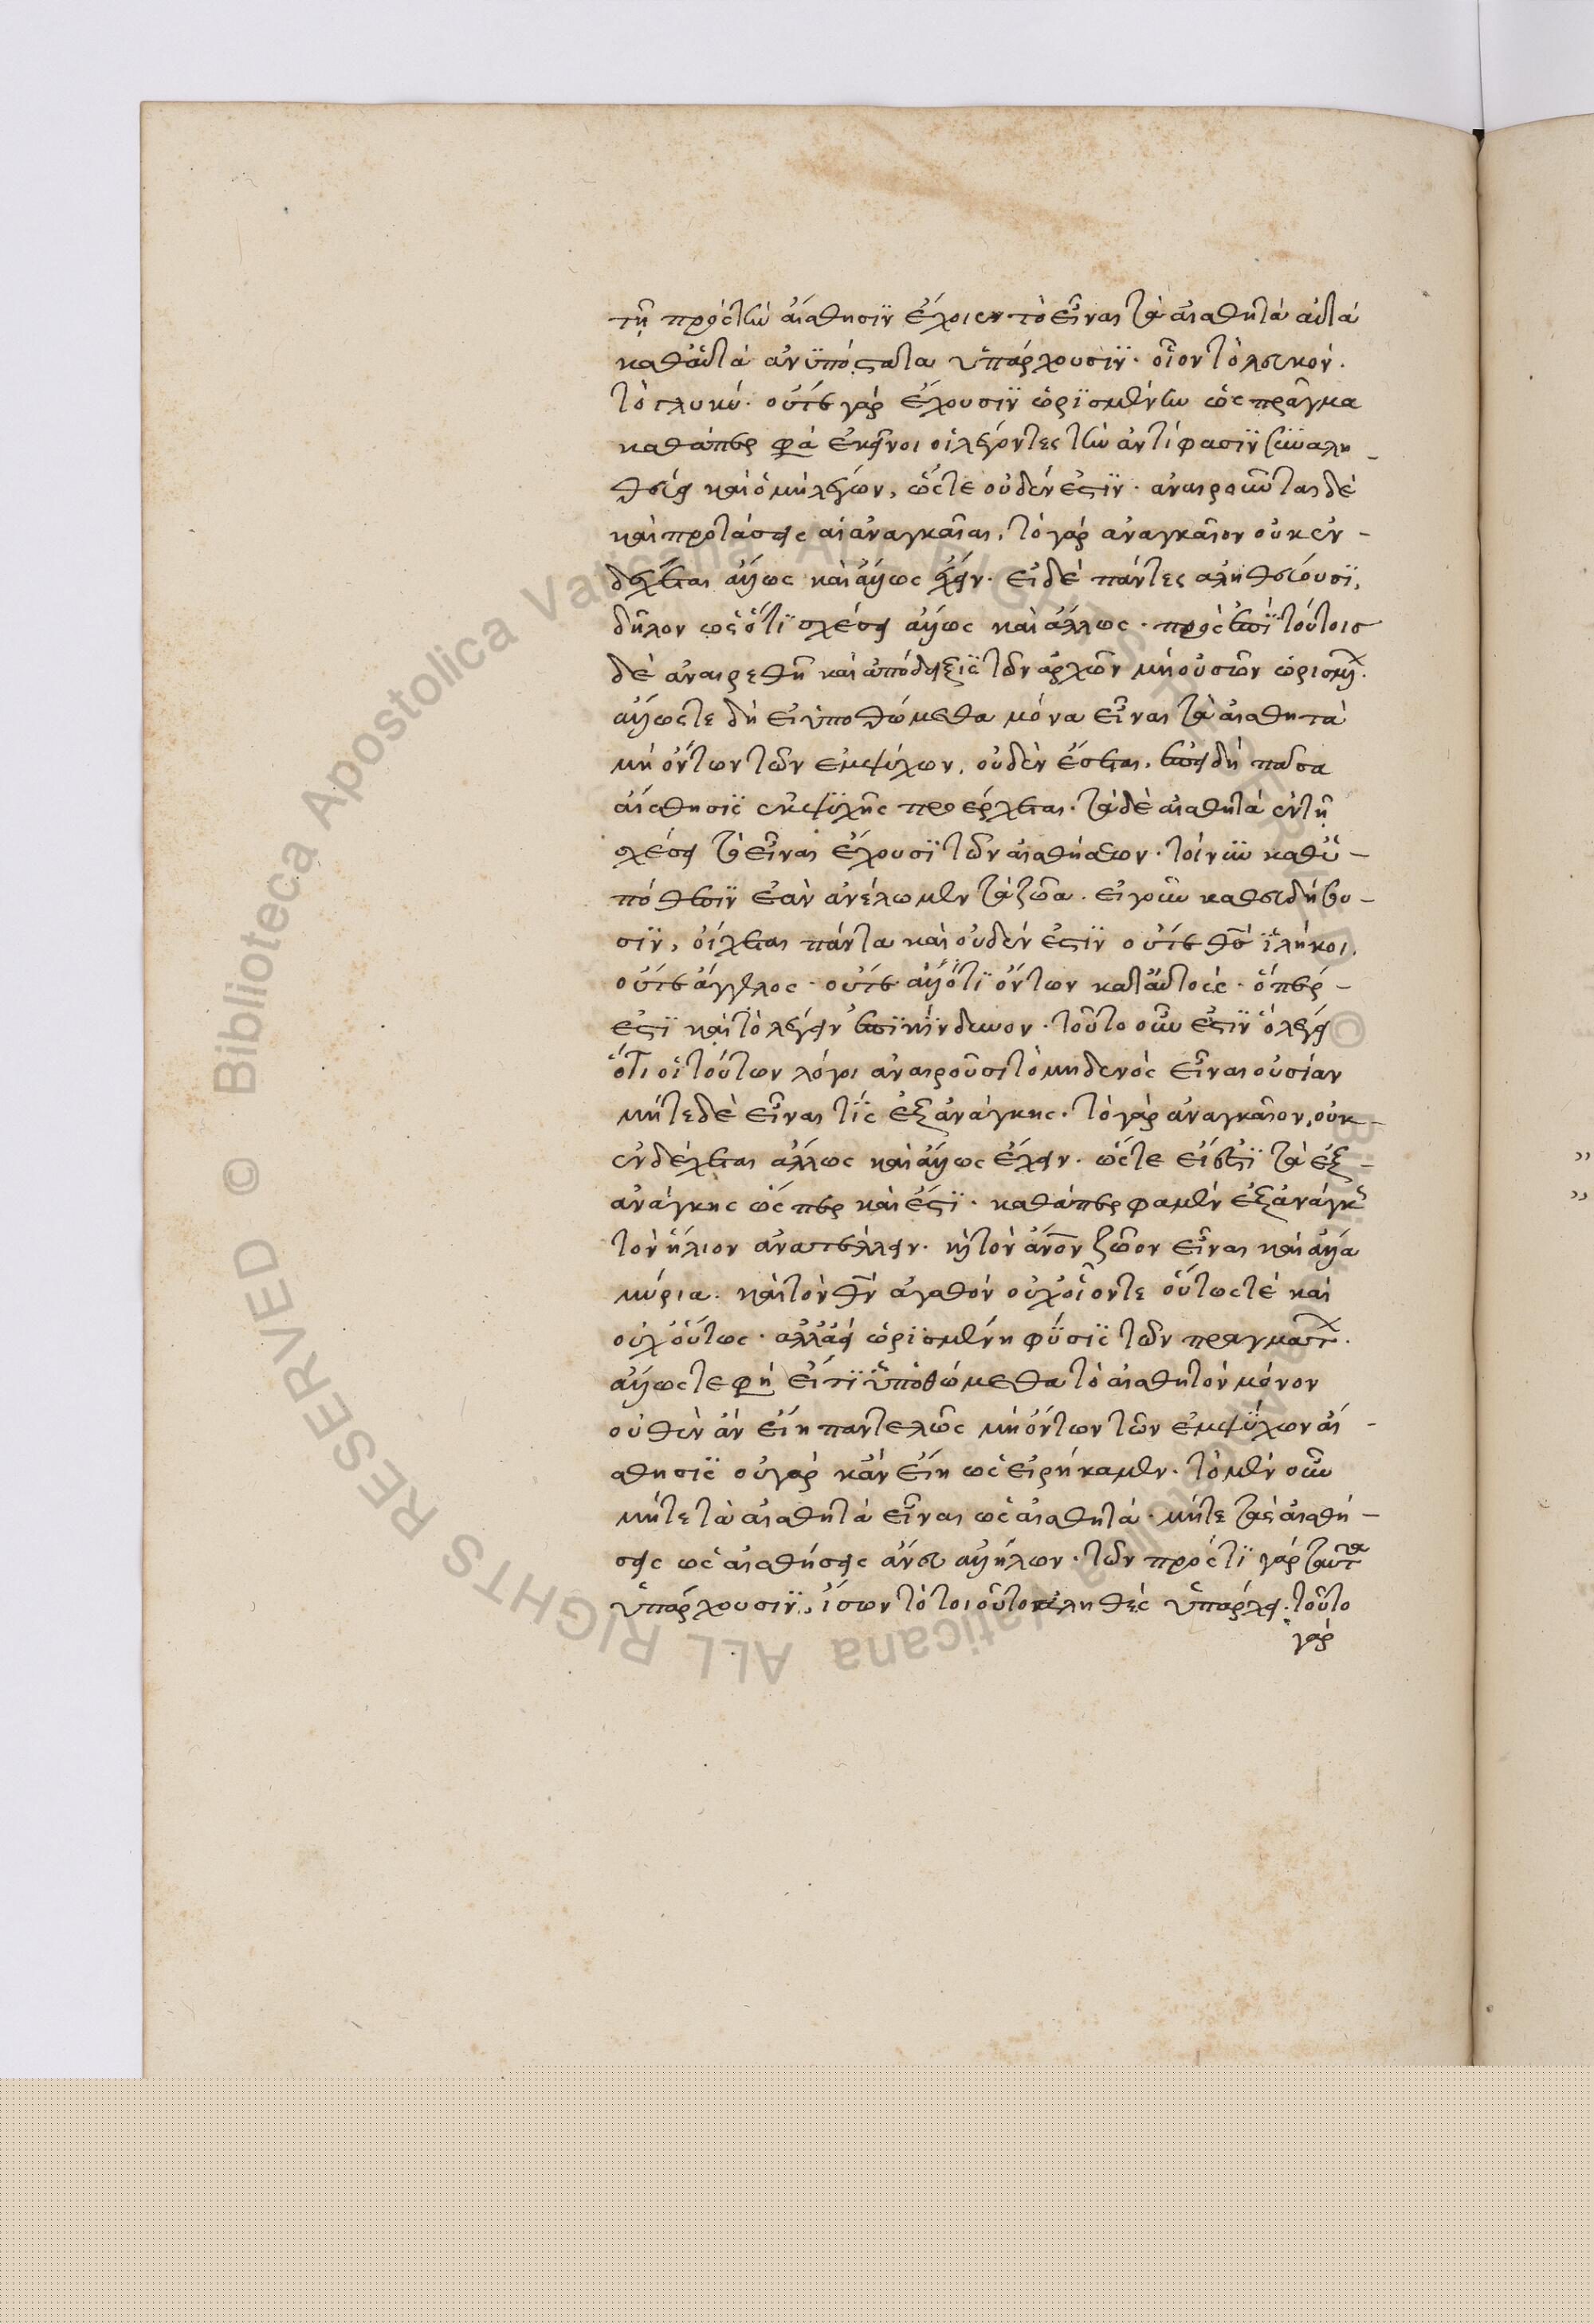 τῇ πρὸς τὴν αἴσθησιν ἔχοιεν τὸ εἶναι τὰ αἰσθητὰ αὐτὰ
καθ᾽ αὑτὰ ἀνυπόστατα ὑπάρχουσιν. οἷον τὸ λευκόν.
τὸ γλυκύ. οὔτε γὰρ ἔχουσιν ὡρισμένην ὡς πρᾶγμα
καθάπερ φα ἐκεῖνοι οἱ λέγοντες τὴν ἀντίφασιν συναλη-
θεύει καὶ ὁ μὴ λέγων, ὥστε οὐδέν ἐστιν. ἀναιροῦνται δὲ
καὶ προτάσεις αἱ ἀναγκαῖαι, τὸ γὰρ ἀναγκαῖον οὐκ ἐν-
δέχεται ἄλλως καὶ ἄλλως ἔχειν. εἰ δὲ πάντες ἀληθεύουσι,
δῆλον ὡς ὅτι σχέσει ἄλλως καὶ ἄλλως. πρὸς ἐπὶ τούτοις
δὲ ἀναιρεθῇ καὶ ἀπόδειξις τῶν ἀρχῶν μὴ οὐσῶν ὡρισμ.
ἄλλως τε δὴ εἰ ὑποθώμεθα μόνα εἶναι τὰ αἰσθητὰ
μὴ ὄντων τῶν ἐμψύχων, οὐδὲν ἔσται. ἐπειδὴ πᾶσα
αἴσθησις ἐκ ψυχῆς προέρχεται. τὰ δὲ αἰσθητὰ ἐν τῇ
σχέσει τὸ εἶναι ἔχουσι τῶν αἰσθήσεων. τοίνυν καθ᾽ ὑ-
πόθεσιν ἐὰν ἀνέλωμεν τὰ ζῶα. εἰ γοῦν καθευδήσου-
σιν, οἴχεται πάντα καὶ οὐδέν ἐστιν οὔτε θσ ἱλήκοι.
οὔτε ἄγγελος. οὔτε ἄλλό τι ὄντων κατ᾽ αὐτούς. ὅπερ-
ἐστὶ καὶ τὸ λέγειν ἐπικίνδυνον. τοῦτο οὖν ἐστιν ὃ λέγει
ὅτι οἱ τούτων λόγοι ἀναιροῦσι τὸ μηδενὸς εἶναι οὐσίαν
μήτε δὲ εἶναι τίς ἐξ ἀνάγκης. τὸ γὰρ ἀναγκαῖον, οὐκ-
ἐνδέχεται ἄλλως καὶ ἄλλως ἔχειν. ὥστε εἰ ἔσται τὰ ἐξ-
ἀνάγκης ὥσπερ καὶ ἔστι. καθάπερ φαμὲν ἐξ ἀνάγκης
τὸν ἥλιον ἀνατέλλειν. καὶ τὸν ἄνον ζῶον εἶναι καὶ ἄλλα
μύρια. καὶ τὸν θν ἀγαθὸν οὐχ οἷόν τε οὕτως τὲ καὶ
οὐχ οὕτως. ἀλλὰ ἀεὶ ὡρισμένη φύσις τῶν πραγμάτ.
ἄλλως τε φη εἴ τι ὑποθώμεθα τὸ αἰσθητὸν μόνον
οὐθὲν ἂν εἴη παντελῶς μὴ ὄντων τῶν ἐμψύχων αἴ-
σθησις οὐ γὰρ κἂν εἴη ὡς εἰρήκαμεν. τὸ μὲν οὖν
μήτε τὰ αἰσθητὰ εἶναι ὡς αἰσθητά. μήτε τὰς αἰσθή-
σεις ὡς αἰσθήσεις ἄνευ ἀλλήλων. τῶν πρός τι γὰρ ταῦτα
ὑπάρχουσιν, ἴσων τὸ τοιοῦτον ἀληθὲς ὑπάρχει. τοῦτο
γὰρ